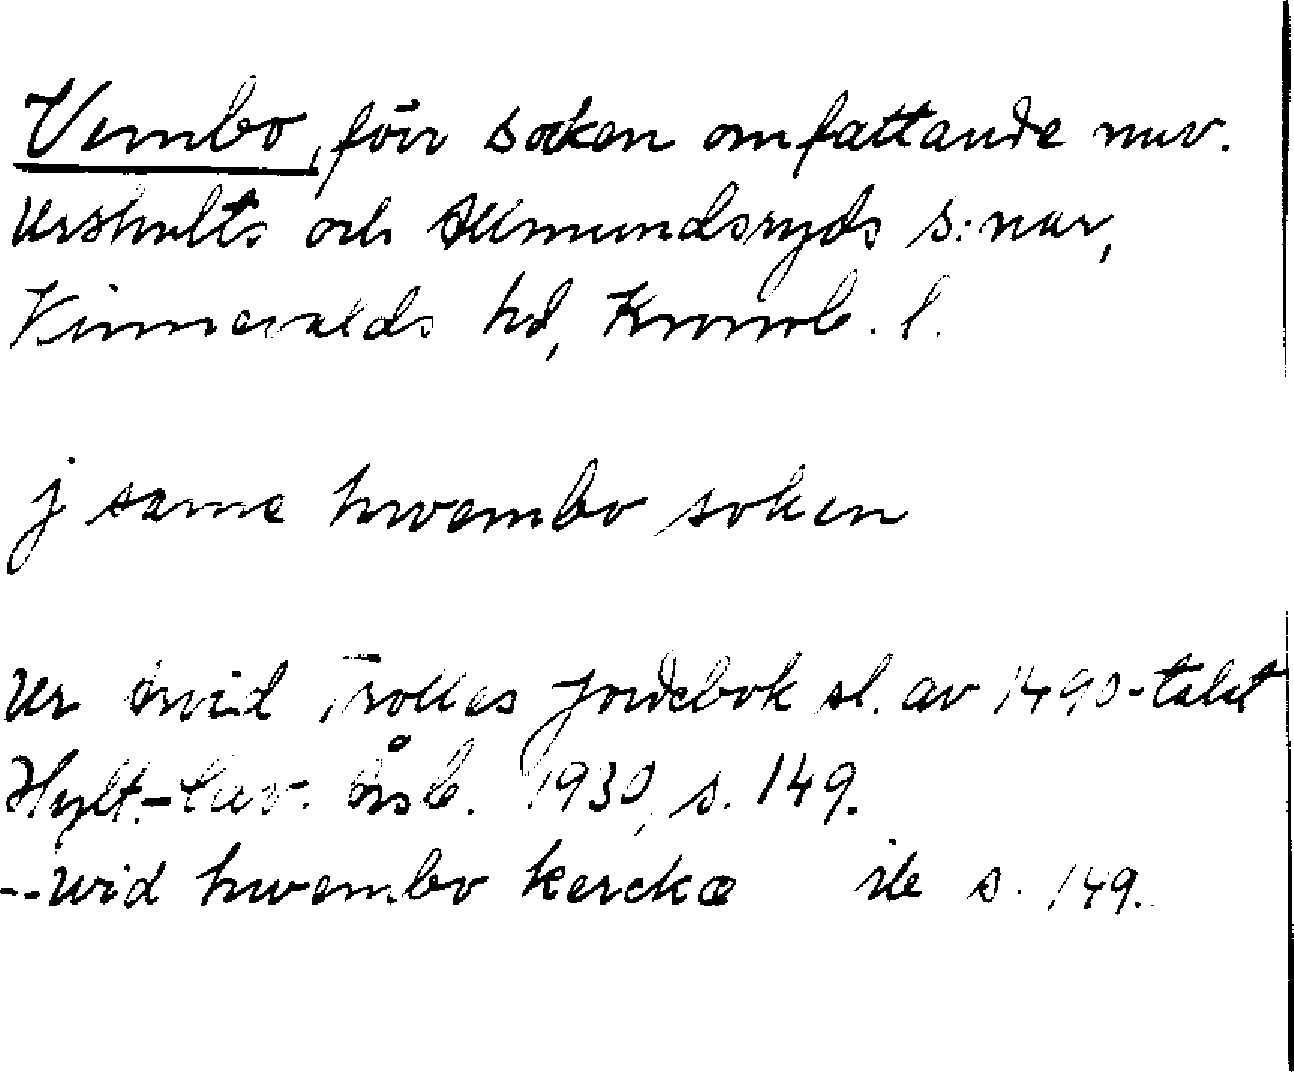 Vembo, förr socken omfattande nuv.
Urshults och Almundsryds s:nar,
Kinnevalds hd, Kronob. l.
j same hwembo soken
Ur Arvid Trolles jordebok sl. av 1490-talet
Hylt.-Cav. Årsb. 1930, s. 149.
--wid hwembo kerckæ ib s. 149.